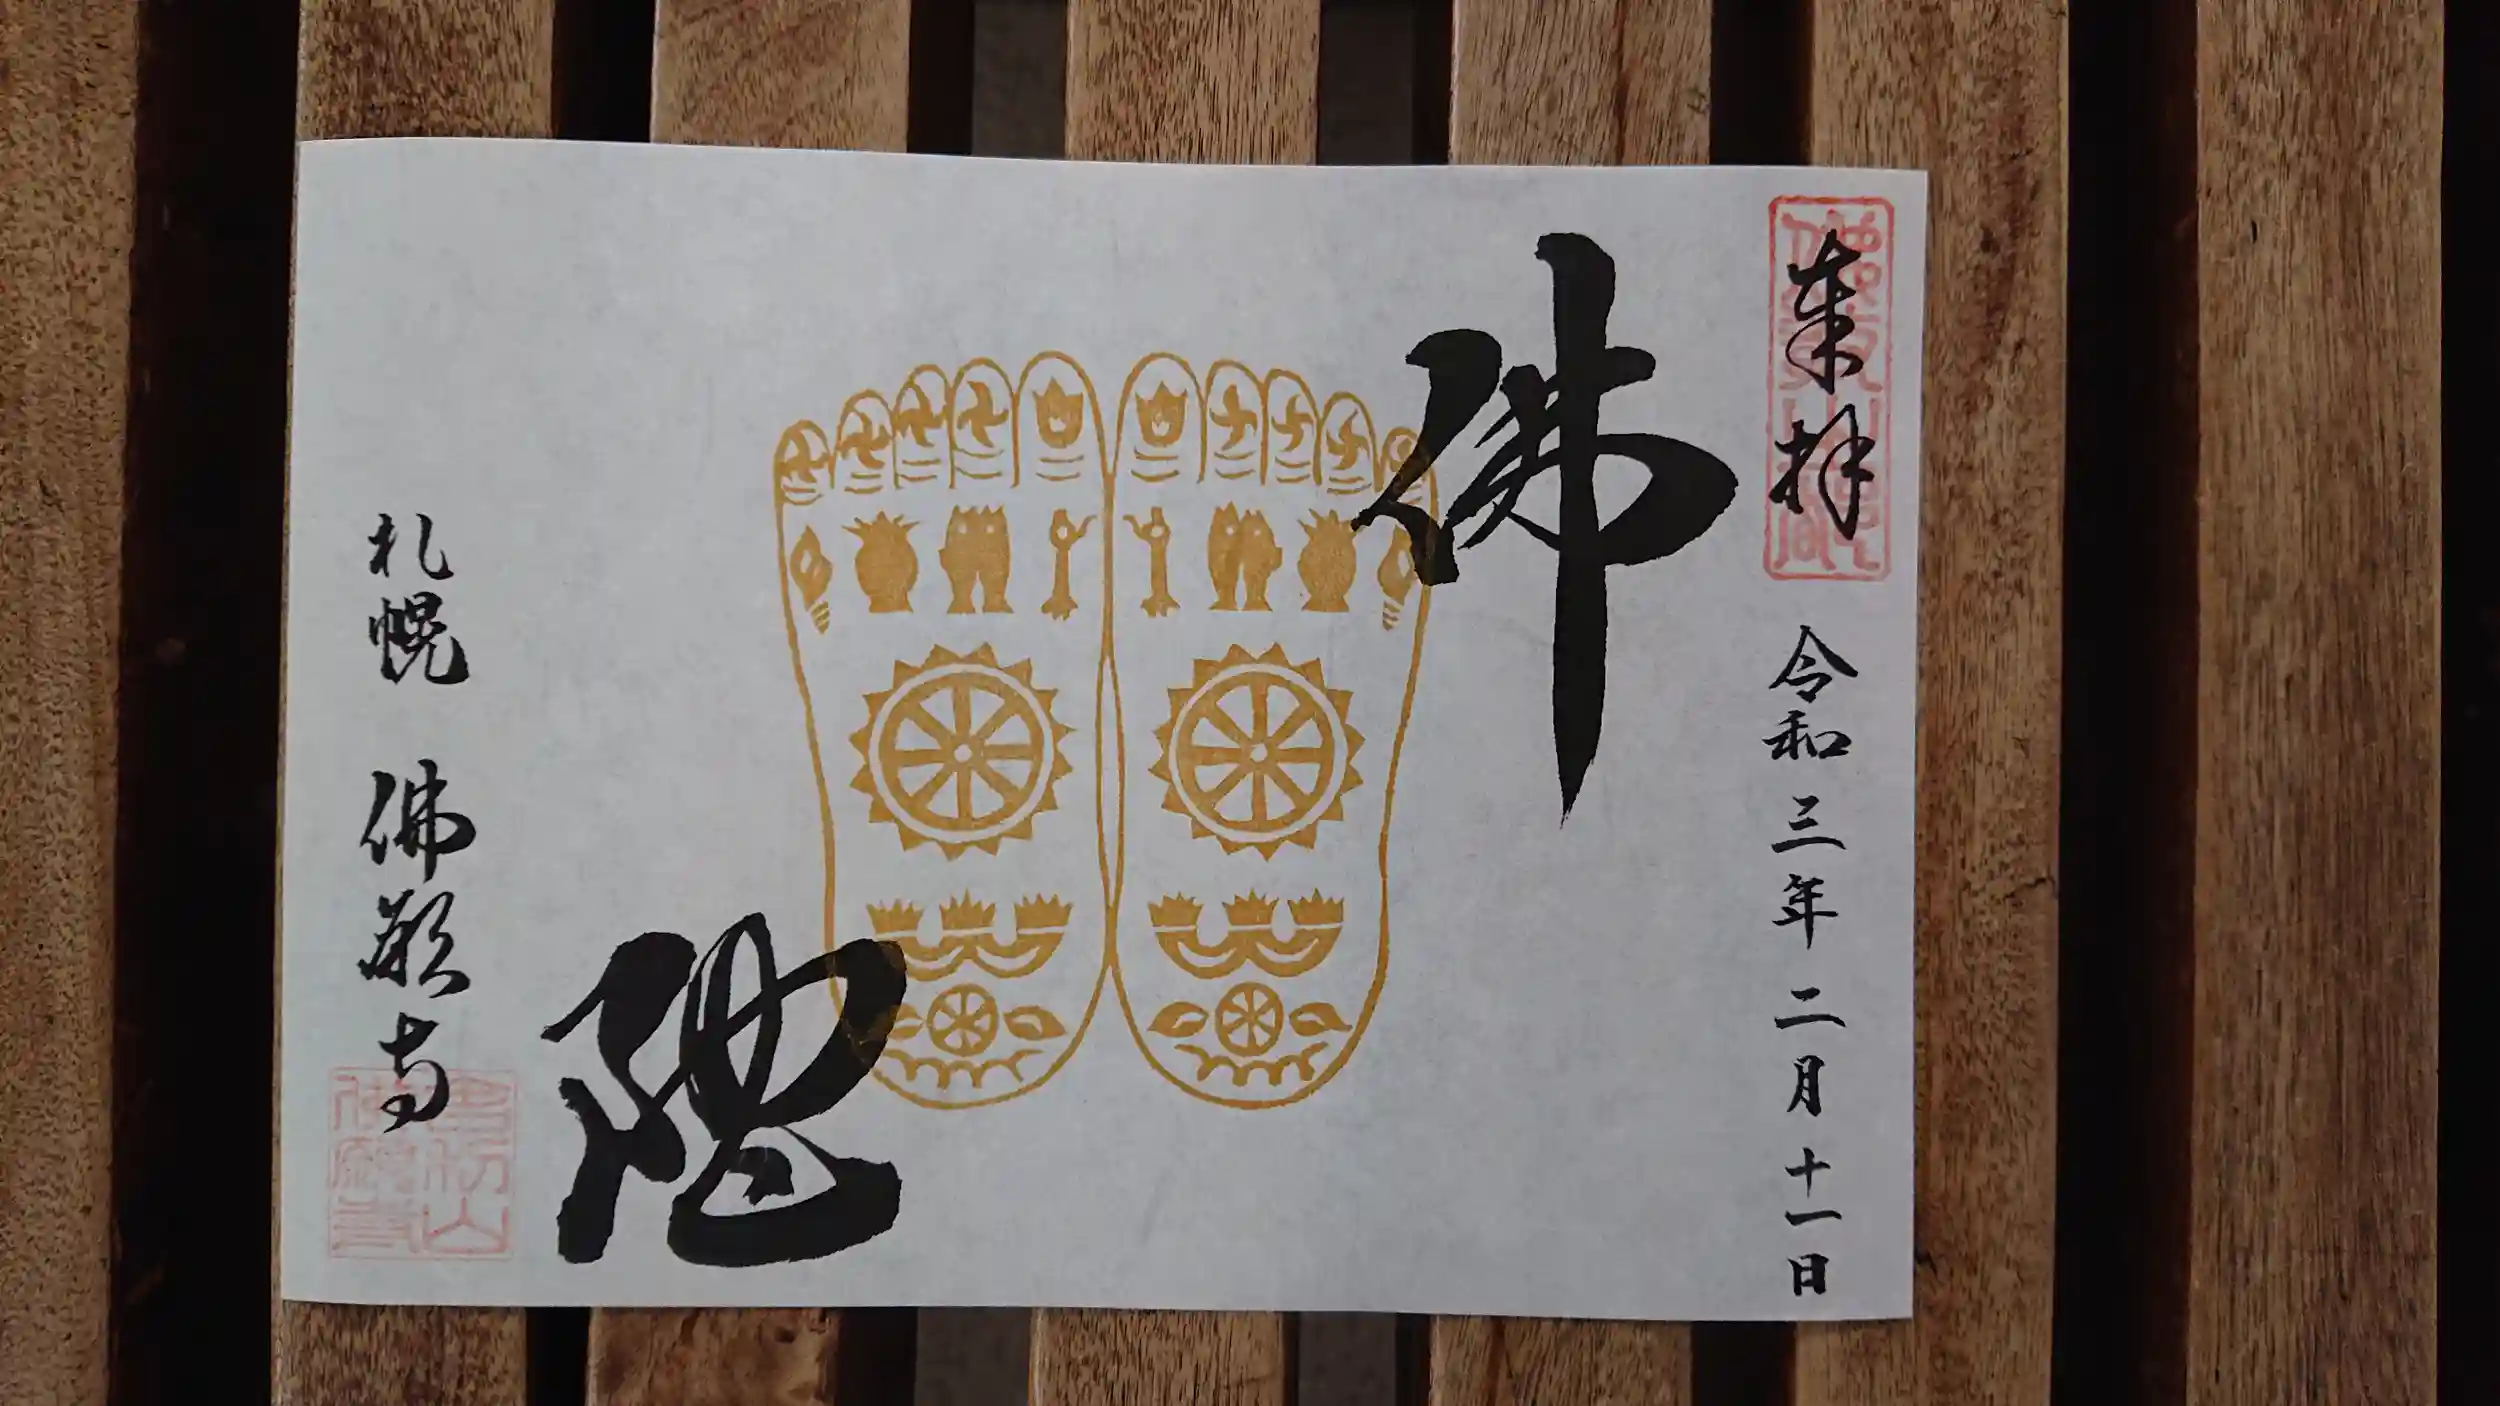 奉拝
令和三年二月十一日
佛
札幌 佛願寺